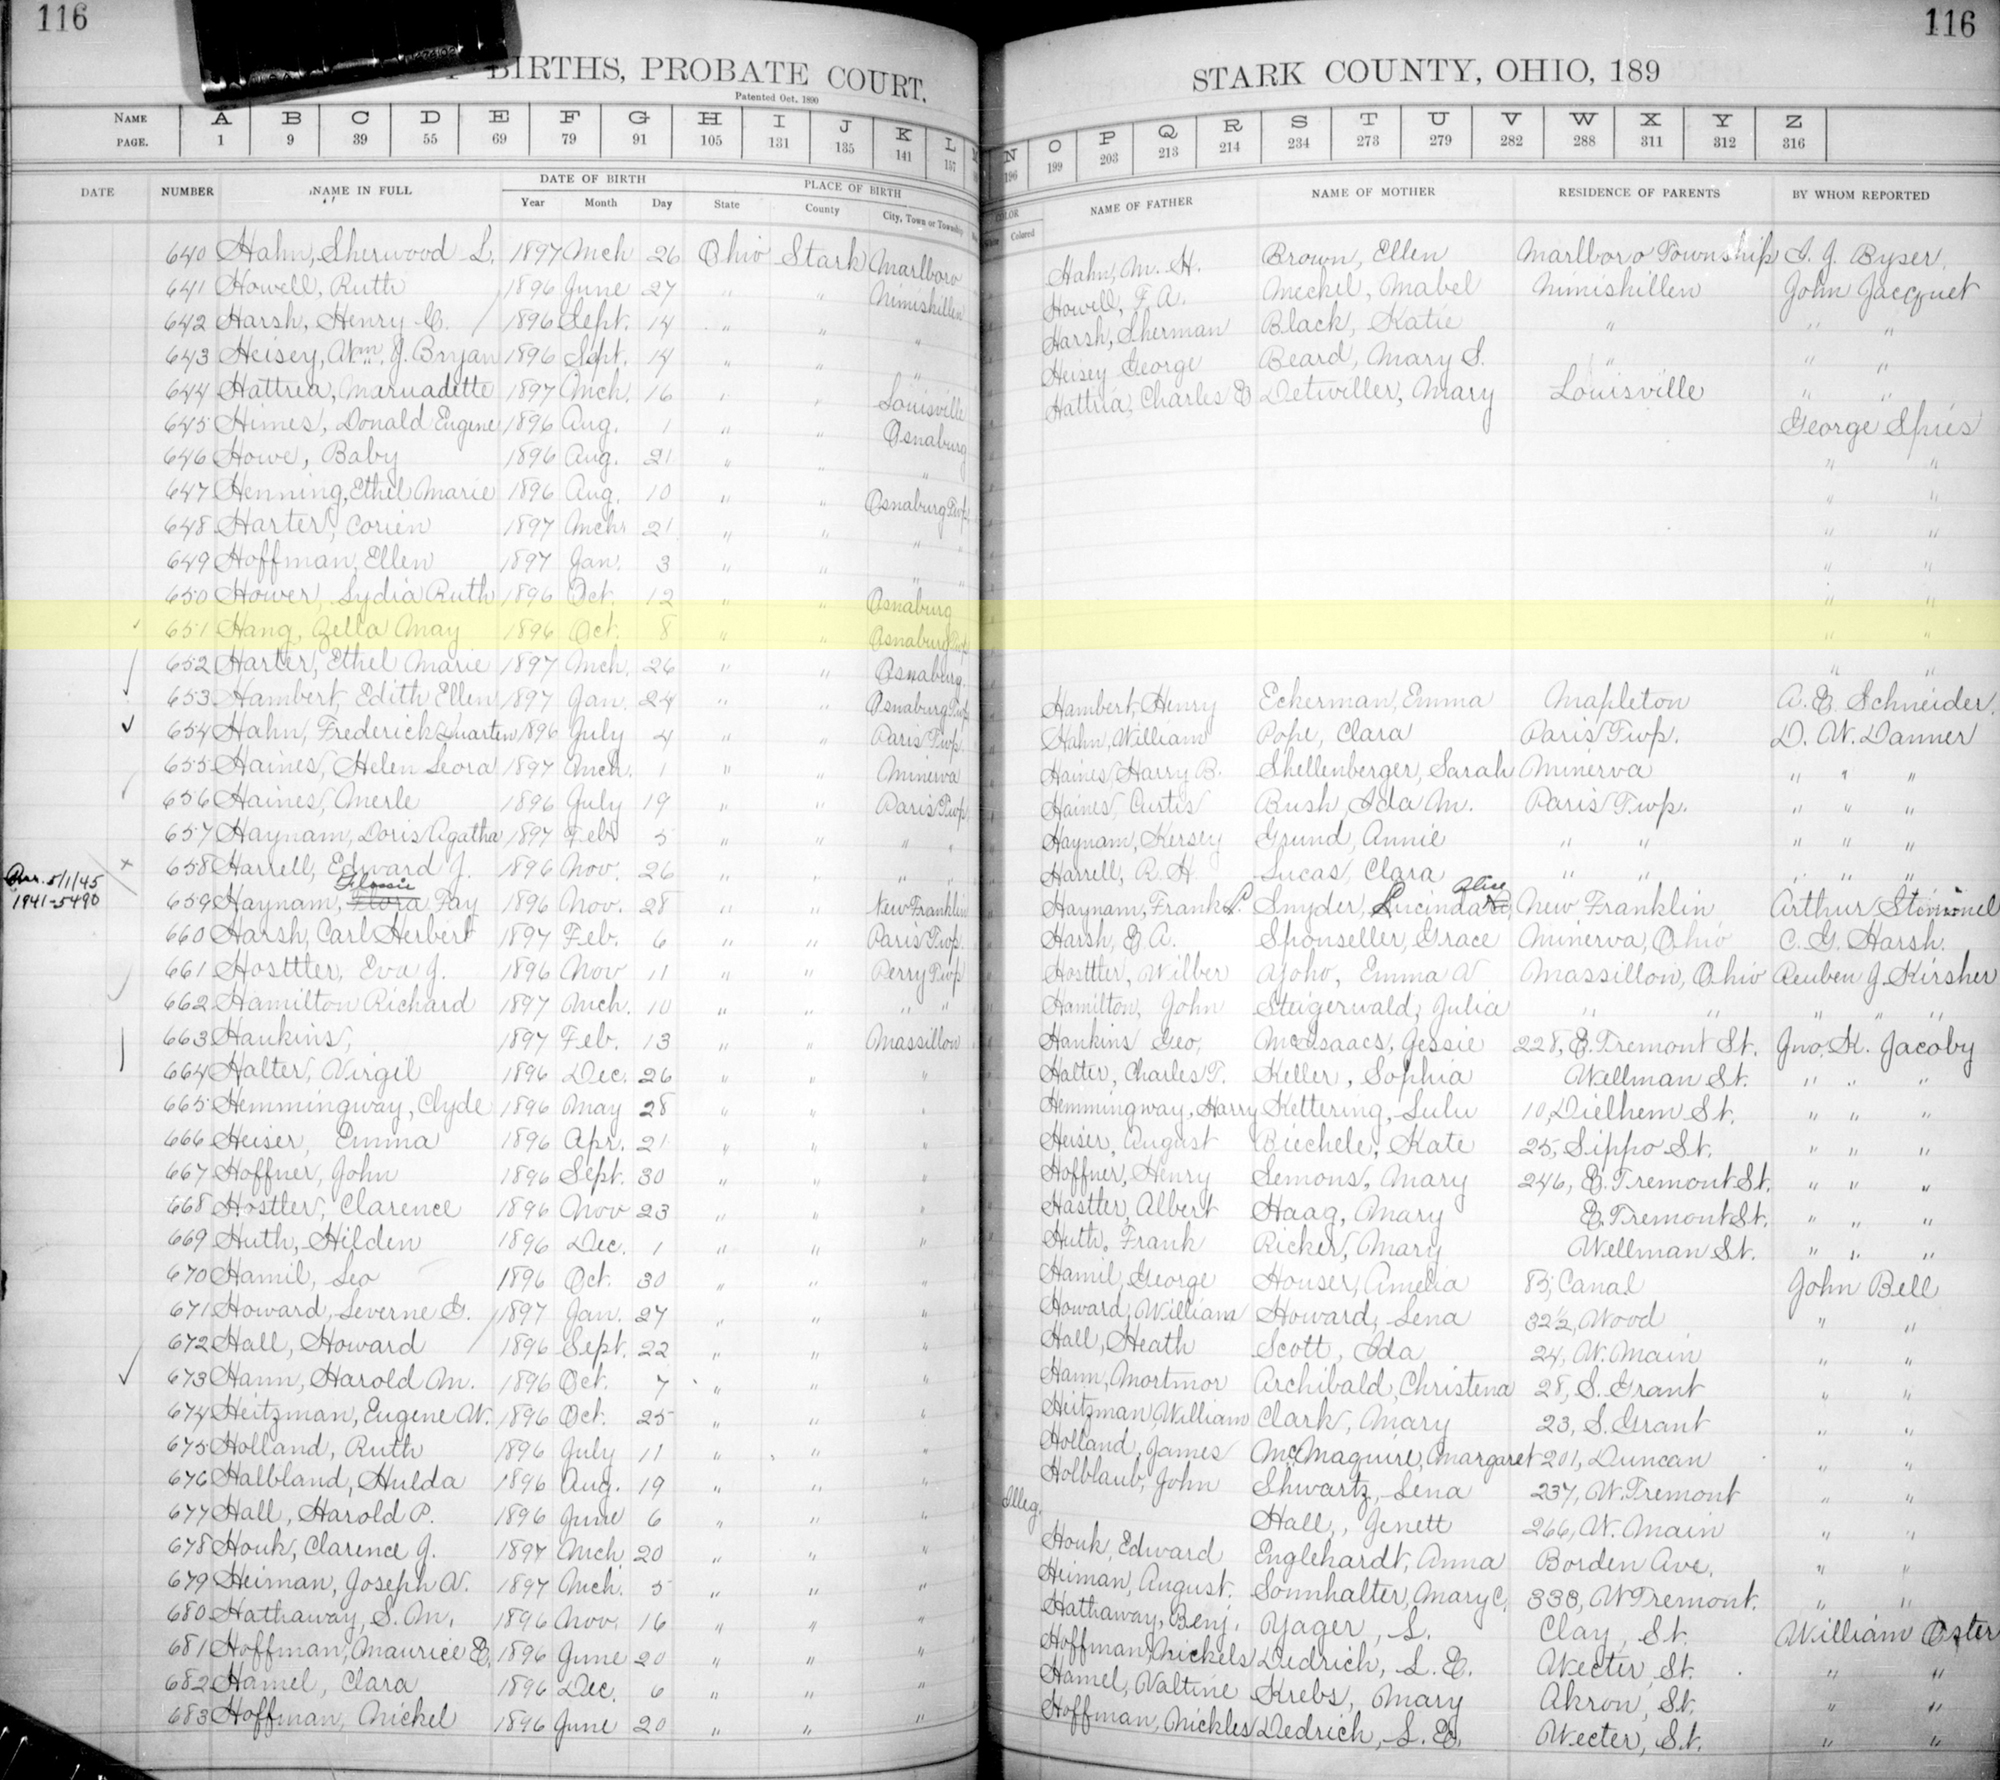 116
116
BIRTHS, PROBATE COURT.
STARK COUNTY, OHIO, 189
Patented Oct. 1890
NAME A B C D E F G H I J K L N O P Q R S T U V W X Y Z
PAGE. 1 9 39 55 69 79 91 105 131 135 141 157 196 199 203 213 214 234 273 279 282 288 311 312 316
DATE NUMBER NAME IN FULL DATE OF BIRTH PLACE OF BIRTH COLOR NAME OF FATHER NAME OF MOTHER RESIDENCE OF PARENTS BY WHOM REPORTED
Year Month Day State County City, Town or Township White Colored
640 Hahn, Sherwood L. 1897 Mch 26 Ohio Stark Marlboro Hahn, M. H. Brown, Ellen Marlboro Township I. J. Byser.
641 Howell, Ruth 1896 June 27 " " Nimishillen Howell, F. A. Meckel, Mabel Nimishillen John Jacquet
642 Harsh, Henry C. 1896 Sept. 14 " " " Harsh, Sherman Black, Katie " " "
643 Heisey, Wm. J. Bryan 1896 Sept. 14 " " " Heisey George Beard, Mary S. " " "
644 Hattria, Maruadette 1897 Mch. 16 " " Louisville Hattria, Charles E Detwiller, Mary Louisville " "
645 Himes, Donald Eugene 1896 Aug. 1 " " Osnaburg George Spies
646 Howe, Baby 1896 Aug. 21 " " " " "
647 Henning, Ethel Marie 1896 Aug. 10 " " Osnaburg Twp. " "
648 Harter, Corien 1897 Mch 21 " " " " " "
649 Hoffman, Ellen 1897 Jan. 3 " " " " " "
650 Hower, Lydia Ruth 1896 Oct. 12 " " Osnaburg " "
651 Hang, Zella May 1896 Oct. 8 " " Osnaburg Twp " "
652 Harter, Ethel Marie 1897 Mch. 26 " " Osnaburg. " "
653 Hambert, Edith Ellen 1897 Jan. 24 " " Osnaburg Twp Hambert, Henry Eckerman, Emma Mapleton A. E. Schneider.
654 Hahn, Frederick Martin 1896 July 4 " " Paris Twp. Hahn, William Pope, Clara Paris Twp. D. W. Danner
655 Haines, Helen Leora 1897 Mch. 1 " " Minerva Haines, Harry B. Shellenberger, Sarah Minerva " " "
656 Haines, Merle 1896 July 19 " " Paris Twp. Haines, Curtis Rush, Ida M. Paris Twp. " " "
657 Haynam, Doris Agatha 1897 Feb 5 " " " " Haynam, Kersey Grund, Annie " " " " "
658 Harrell, Edward J. 1896 Nov. 26 " " " " Harrell, R. H. Lucas, Clara " " " " "
5/1/45
1941-5490
659 Haynam, Flora Flossie Fay 1896 Nov. 28 " " New Franklin Haynam, Frank L. Snyder, Lucinda Alice New Franklin Arthur
660 Harsh, Carl Herbert 1897 Feb. 6 " " Paris Twp. Harsh, E. A. Sponseller, Grace Minerva, Ohio C. G. Harsh.
661 Hosttler, Eva J. 1896 Nov 11 " " Perry Twp Hosttler, Wilber Yoho, Emma V Massillon, Ohio Reuben J. Kirsher
662 Hamilton Richard 1897 Mch. 10 " " " " Hamilton, John Steigerwald, Julia " " " " "
663 Hankins, 1897 Feb. 13 " " Massillon Hankins Geo, McIsaacs, Jessie 228, E. Tremont St. Jno. K. Jacoby
664 Halter, Virgil 1896 Dec. 26 " " " Halter, Charles T. Keller, Sophia Wellman St. " " "
665 Hemmingway, Clyde 1896 May 28 " " " Hemmingway, Harry Kettering, Lulu 10, Dielhem St. " " "
666 Heiser, Emma 1896 Apr. 21 " " " Heiser, August Biechele, Kate 25, Sippo St. " " "
667 Hoffner, John 1896 Sept. 30 " " " Hoffner, Henry Lemons, Mary 246, E. Tremont St. " " "
668 Hostler, Clarence 1896 Nov 23 " " " Hastler, Albert Haag, Mary E. Tremont St. " " "
669 Huth, Hilden 1896 Dec. 1 " " " Huth, Frank Ricker, Mary Wellman St. " " "
670 Hamil, Leo 1896 Oct. 30 " " " Hamil, George Houser, Amelia 85, Canal John Bell
671 Howard, Leverne G. 1897 Jan. 27 " " " Howard, William Howard, Lena 32½, Wood " "
672 Hall, Howard 1896 Sept. 22 " " " Hall, Heath Scott, Ida 24, W. Main " "
673 Hann, Harold M. 1896 Oct. 7 " " " Hann, Mortmor Archibald, Christena 28, S. Grant " "
674 Heitzman, Eugene W. 1896 Oct. 25 " " " Heitzman William Clark, Mary 23, S. Grant " "
675 Holland, Ruth 1896 July 11 " " " Holland, James McMaguire, Margaret 201, Duncan " "
676 Halbland, Hulda 1896 Aug. 19 " " " Holblaub, John Shwartz, Lena 237, W. Tremont " "
677 Hall, Harold P. 1896 June 6 " " " Illeg. Hall, Genett 266, W. Main " "
678 Houk, Clarence J. 1897 Mch 20 " " " Houk, Edward Englehardt, Anna Borden Ave. " "
679 Heiman, Joseph A. 1897 Mch. 5 " " " Heiman, August. Sonnhalter, Mary C. 333, W Tremont. " "
680 Hathaway, S. M. 1896 Nov. 16 " " " Hathaway, Benj. Yager, S. Clay, St. William Oster
681 Hoffman, Maurice E. 1896 June 20 " " " Hoffman, Nickels Dedrich, L. E. Wecter, St. " "
682 Hamel, Clara 1896 Dec. 6 " " " Hamel, Valtine Krebs, Mary Akron, St. " "
683 Hoffman, Nickel 1896 June 20 " " " Hoffman, Nickles Dedrich, L. E. Wecter, St. " "